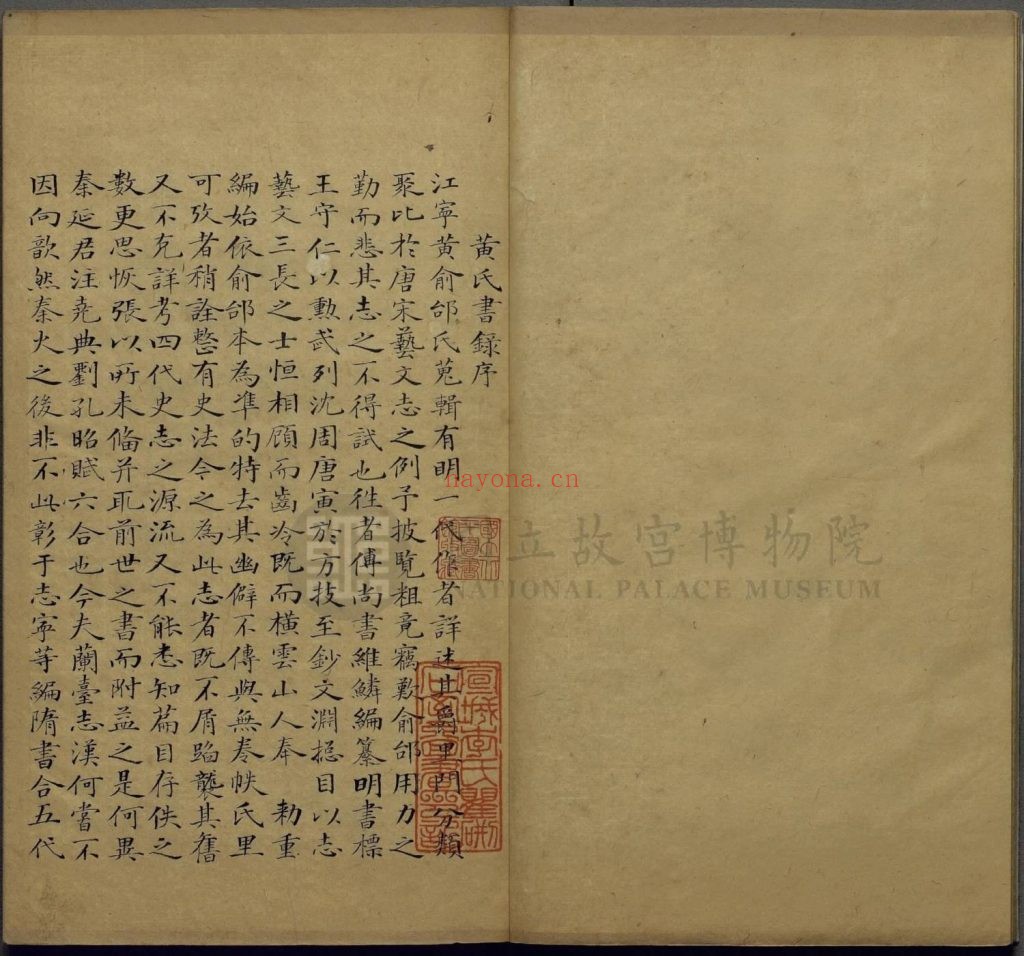 黃氏書錄序
江寧黃俞邰氏蒐輯有明一代作者詳述其爵里門分類
聚比於唐宋藝文志之例予披覽粗竟竊歎俞邰用力之
勤而悲其志之不得試也徃者傅尚書維鱗編纂明書標
王守仁以勳武列沈周唐寅於方技至鈔文淵揔目以志
藝文三長之士恒相顧而齒冷既而橫雲山人奉 勅重
編始依俞邰本為準的特去其幽僻不傳與無卷帙氏里
可攷者稍詮整有史法今之為此志者既不屑蹈襲其舊
又不克詳考四代史志之源流又不能悉知篇目存佚之
數更思恢張以所未俻并取前世之書而附益之是何異
秦延君注堯典劉孔昭賦六合也今夫蘭臺志漢何嘗不
因向歆然秦火之後非不此彰于志寧等編隋書合五代
國立故宮博物院
NATIONAL PALACE MUSEUM
nayona.cn